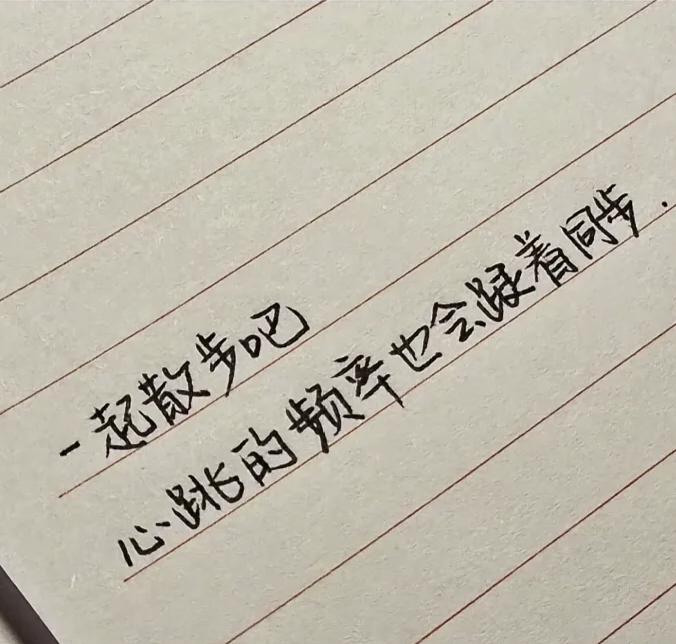 一起散步吧
心跳的频率也会跟着同步.